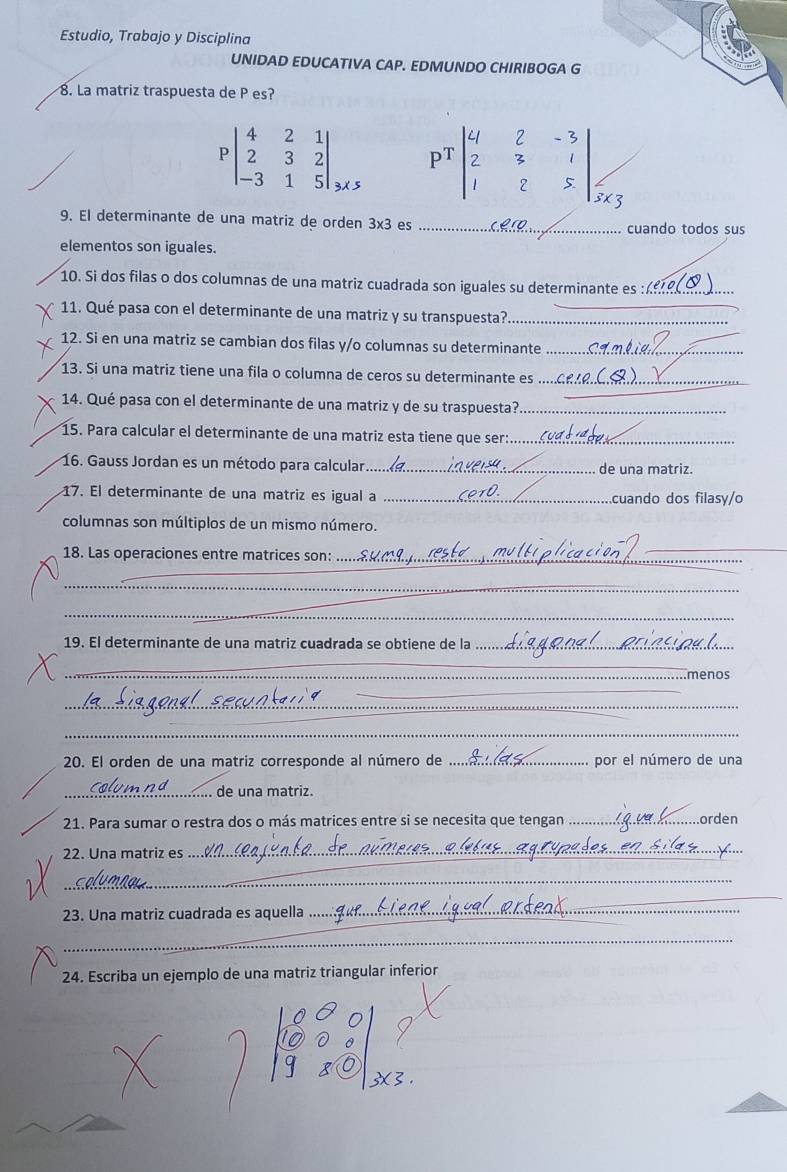 Estudio, Trabajo y Disciplina
UNIDAD EDUCATIVA CAP. EDMUNDO CHIRIBOGA G
8. La matriz traspuesta de P es?
P |4 2 1| P^T |4 2 -3|
|2 3 2| |2 3 1|
|-3 1 5| 3x3 |1 2 5.| 3x3
9. El determinante de una matriz de orden 3x3 es cero cuando todos sus
elementos son iguales.
10. Si dos filas o dos columnas de una matriz cuadrada son iguales su determinante es : cero (0)
11. Qué pasa con el determinante de una matriz y su transpuesta?
12. Si en una matriz se cambian dos filas y/o columnas su determinante cambia.
13. Si una matriz tiene una fila o columna de ceros su determinante es cero (0)
14. Qué pasa con el determinante de una matriz y de su traspuesta?
15. Para calcular el determinante de una matriz esta tiene que ser: cuadrada
16. Gauss Jordan es un método para calcular la inversa. de una matriz.
17. El determinante de una matriz es igual a cero. cuando dos filasy/o
columnas son múltiplos de un mismo número.
18. Las operaciones entre matrices son: suma, resta, multiplicacion
19. El determinante de una matriz cuadrada se obtiene de la diagonal principal.
menos
la diagonal secuntaria
20. El orden de una matriz corresponde al número de filas por el número de una
columna de una matriz.
21. Para sumar o restra dos o más matrices entre si se necesita que tengan igual orden
22. Una matriz es un conjunto de números o letras agrupados en filas y
columnas
23. Una matriz cuadrada es aquella que tiene igual orden
24. Escriba un ejemplo de una matriz triangular inferior
|0 0 0|
|10 0 0|
|9 8 0| 3x3.